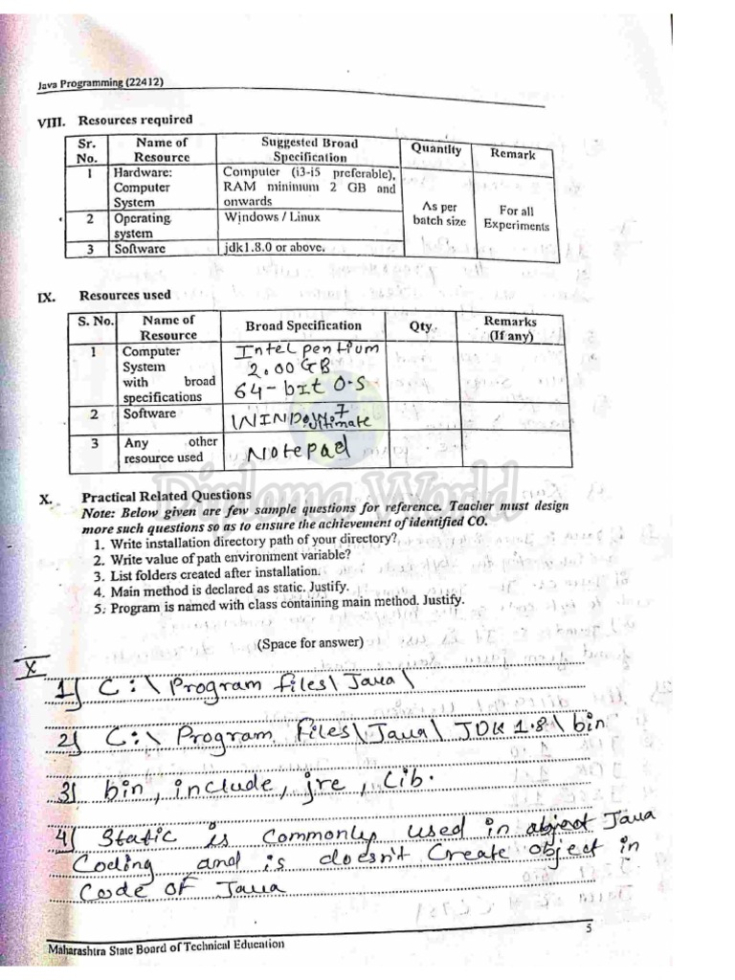 Java Programming (22412)
VIII. Resources required
Sr. No. Name of Resource Suggested Broad Specification Quantity Remark
1 Hardware: Computer System Computer (i3-i5 preferable), RAM minimum 2 GB and onwards As per batch size For all Experiments
2 Operating system Windows / Linux
3 Software jdk1.8.0 or above.
IX. Resources used
S. No. Name of Resource Broad Specification Qty. Remarks (If any)
1 Computer System with broad specifications Intel pentium 2.00 GB 64-bit O-S
2 Software WINDOW 7 Ultimate
3 Any other resource used Notepad
Diploma World
X. Practical Related Questions
Note: Below given are few sample questions for reference. Teacher must design
more such questions so as to ensure the achievement of identified CO.
1. Write installation directory path of your directory?
2. Write value of path environment variable?
3. List folders created after installation.
4. Main method is declared as static. Justify.
5. Program is named with class containing main method. Justify.
(Space for answer)
X
1) C:\ Program files\ Java\
2) C:\ Program Files\Java\ JDK 1.8\ bin
3) bin, include, jre, Lib.
4) Static is commonly used in Java
Coding and is doesn't Create object in
Code of Java
5
Maharashtra State Board of Technical Education